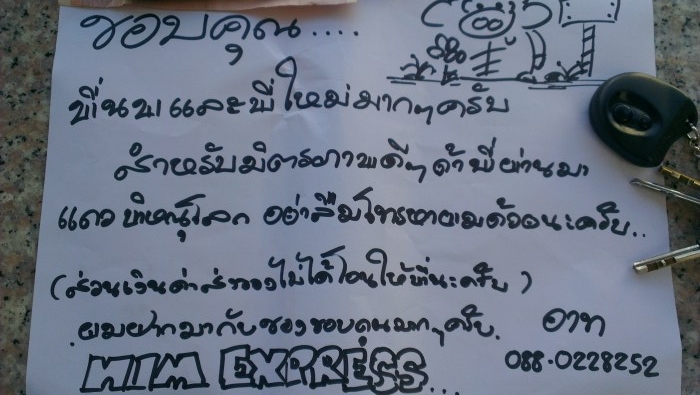 ขอบคุณ....
พี่นพและพี่ใหม่มากๆครับ
สำหรับมิตรภาพดีๆถ้าพี่ผ่านมา
แถวพิษณุโลก อย่าลืมโทรหาผมด้วยนะครับ..
(ส่วนเงินค่าส่งของไม่ได้โอนให้พี่นะครับ)
ผมฝากมากับซองขอบคุณมากๆครับ.
อาท
NIM EXPRESS...
088-0228252